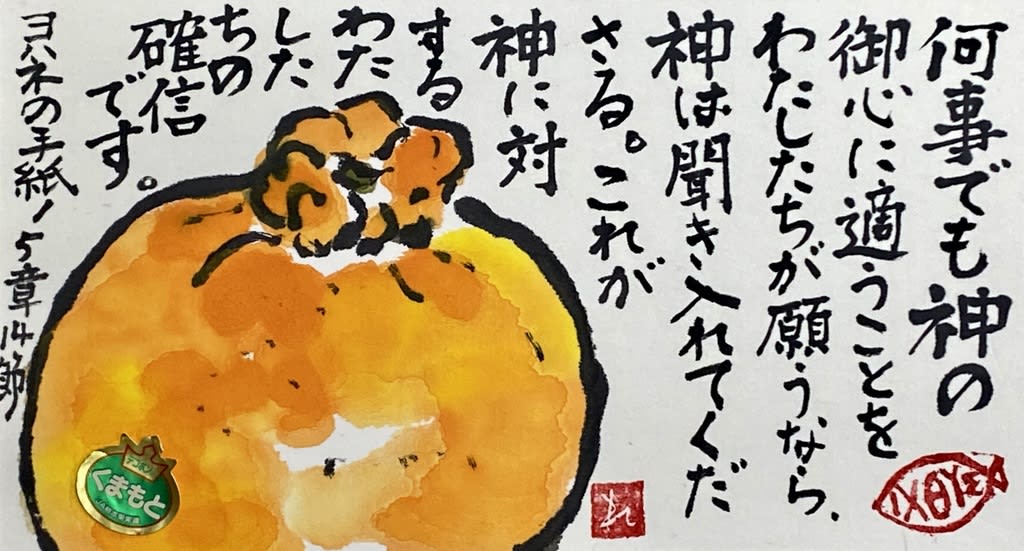 何事でも神の
御心に適うことを
わたしたちが願うなら、
神は聞き入れてくだ
さる。これが
神に対
する
わた
した
ちの
確信
です。
ヨハネの手紙1 5章14節
デコポン
くまもと